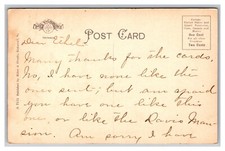 POST CARD
Dear Ethel:-
Many thanks for the cards.
No, I have none like the
ones sent; but am afraid
you have one like this
one, or like the Davis Man-
sion. Am sorry I have